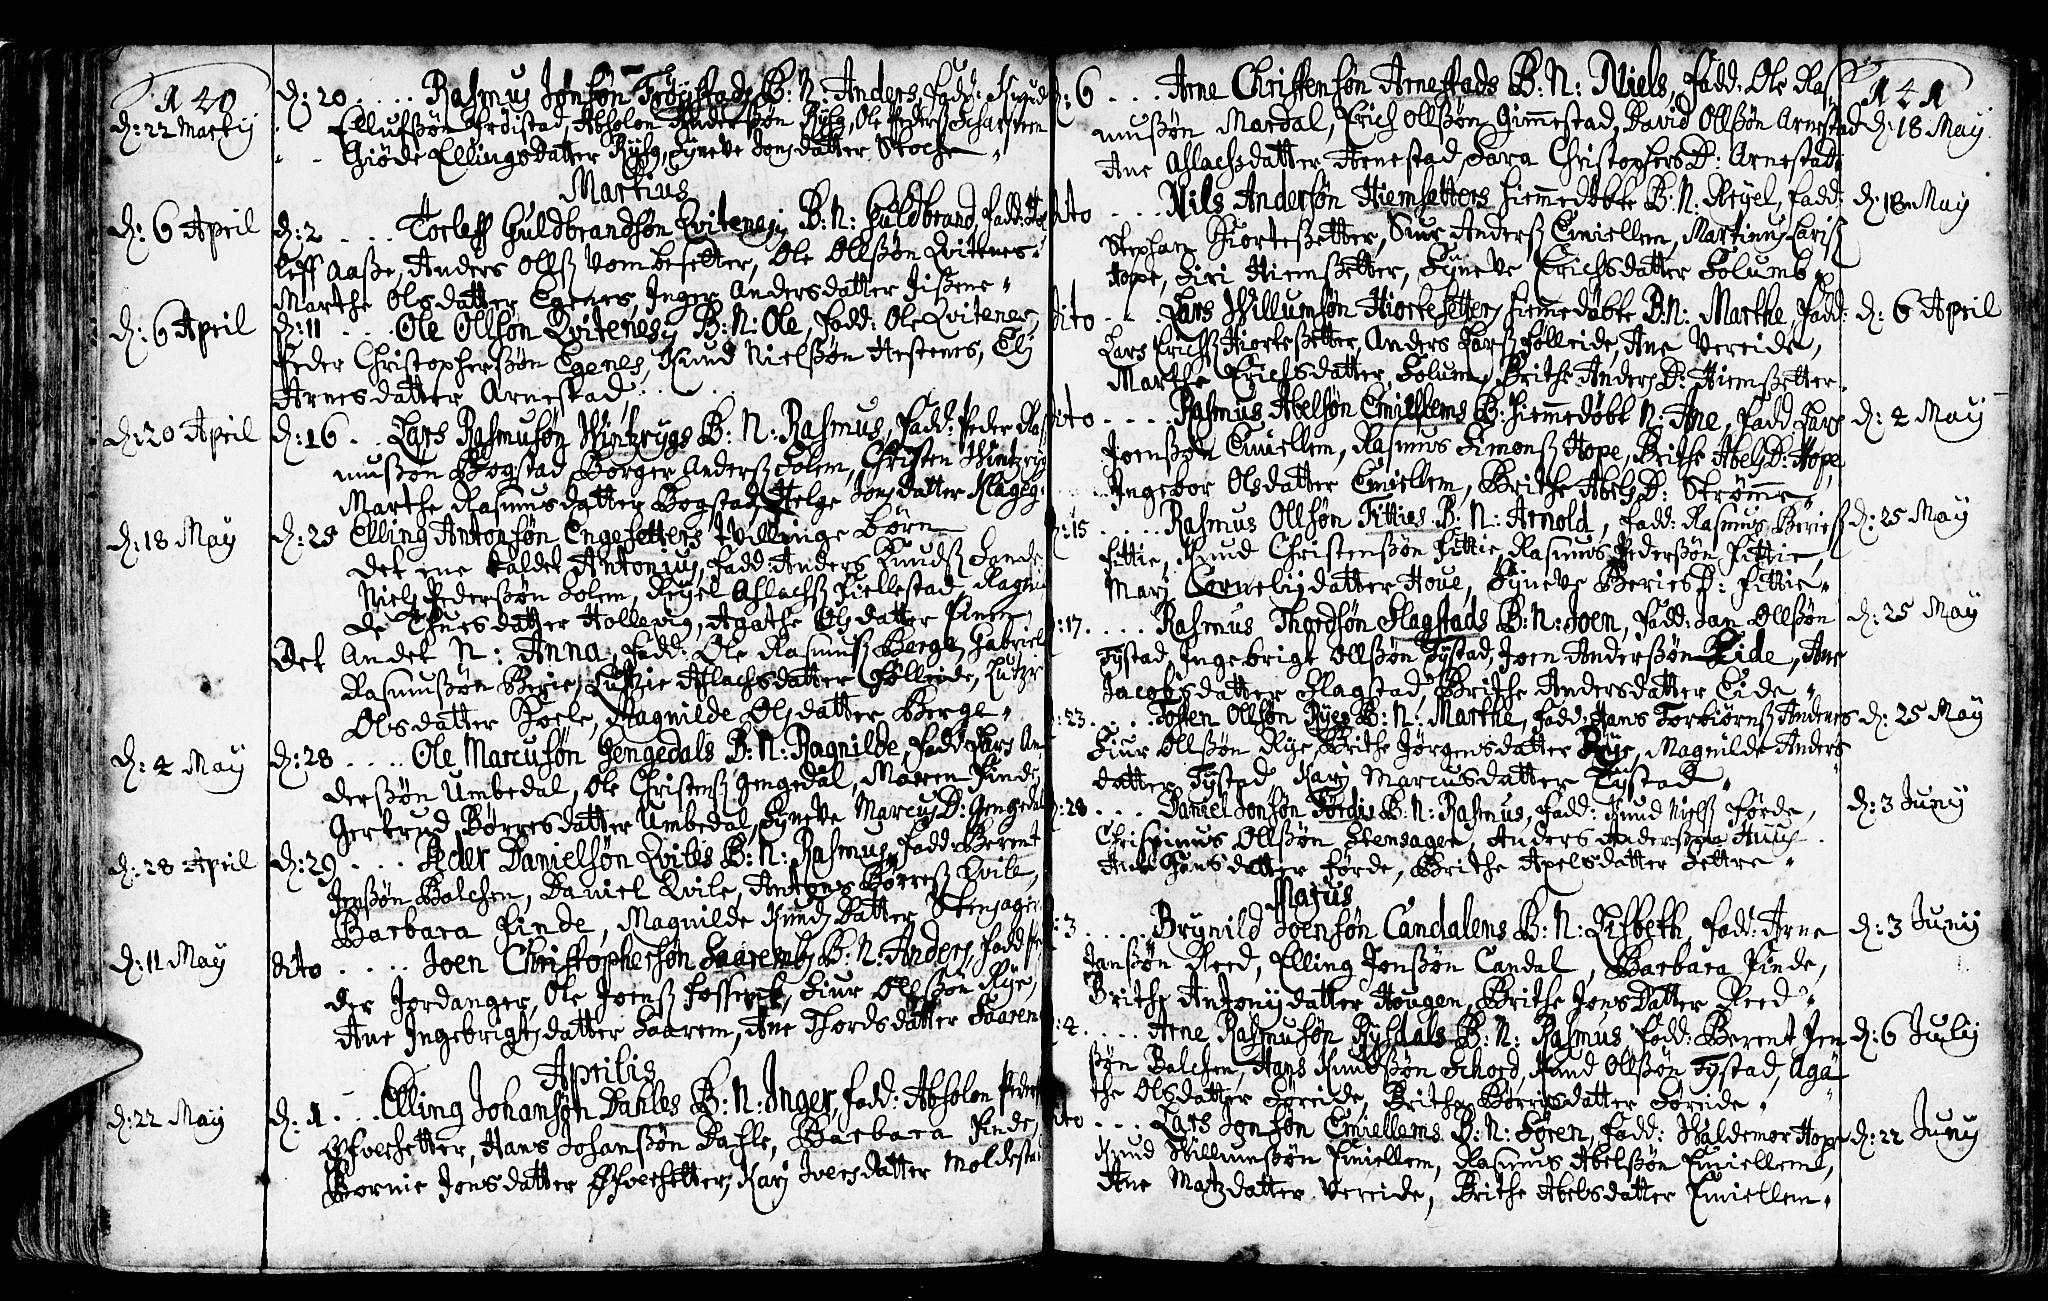 140
d: 22 Martij
d: 20 . . . . Rasmus Jonsøn Frøystads B: N: Anders, Fadd: Knud
Ellufsøn Frøistad, Absolon Andersøn Rysg, Ole Peders
Giøde Ellingsdatter Rysg, Syneve Jonsdatter Stoche
Martius
d: 6 April
d: 2 . . . Torleff Guldbrandsøn Qvitenesj B: N: Guldbrand, Fadd: Tor
leff Aasse, Anders Olls Vombesetter, Ole Ollssøn Qvitenes
Marthe Olsdatter Egenes, Inger Andersdatter
d: 6 April
d: 11 . . . Ole Ollsøn Qvitenesj B: N: Ole, Fadd: Ole Qvitenes,
Peder Christopherssøn Egenes, Knud Nielssøn Hestenes, Eli
Arnesdatter Arnestad,
d: 20 April
d: 16 . . Lars Rasmusøn Wintrygs B: N: Rasmus, Fadd: Peder Ras
mussøn Bogstad, Børger Anders Solem, Christen Wintryg
Marthe Rasmusdatter Bogstad, Helge Jonsdatter
d: 18 May
d: 25 Elling Antonsøn Engesetters tvillinge Børn
det ene kaldet Antonius, Fadd: Anders Knuds Sande
Niels Pederssøn Solem, Reyel Aslachs Fiellestad, Ragnil
de Thuesdatter Hollevig, Agathe Olsdatter
Det Andet N: Anna, Fadd: Ole Rasmus Berge, Gabriel
Rasmussøn Berie, Lutzie Aslachsdatter Følleide, Lutzi
Olsdatter Joele, Magnilde Olsdatter Berge
d: 4 May
d: 28 . . . . Ole Marcusøn Gengedals B: N: Ragnilde, Fadd: Lars An
derssøn Umbedal, Ole Christens Gengedal, Maren Finde,
Gertrud Børresdatter Umbedal, Syneve Marcus D: Gengedal
d: 28 April
d: 29 . . . Peder Danielsøn Qviles B: N: Rasmus, Fadd: Berent
Jenssøn Balchen, Daniel Qvile, Antonj Børres Qvile,
Barbara Finde, Magnilde Knuds Datter
d: 11 May
dito . . . . Joen Christophersøn Saaremsj B: N: Anders, Fadd: Pe
der Jordanger, Ole Joens, Siur Ollssøn Rye,
Ane Ingebrigtsdatter Saarem, Ane Thordsdatter Saarem
Aprilis
d: 22 May
d: 1 . . . Elling Johansøn Dahles B: N: Inger, Fadd: Absolon Peders
Øfversetter, Hans Johanssøn Dahle, Barbara Finde,
Bornie Jonsdatter Øfversetter, Kari Iversdatter Moldestad
141
d: 18 May
d: 6 . . . Arne Christensøn Arnestads B: N: Niels, Fadd: Ole Ras
mussøn Mardal, Erich Ollssøn Gimmestad, David Ollssøn Arnestad
Ane Aslachsdatter Arnestad, Sara Christophers D: Arnestad
d: 18 May
dito . . . . Nils Andersøn Hiemsetters hiemmedøbte B: N: Reyel, Fadd:
Stephan Hiortessetter, Siur Anders Emiellem, Martinus Laris
Hope, Siri Hiemssetter, Syneve Erichsdatter Solumb
d: 6 April
dito . . . Lars Willumsøn Hiortesetters hiemmedøbte B: N: Marthe, Fadd:
Lars Erichs Hiortessetter, Anders Lars Følleide, Ane Vereide,
Marthe Erichsdatter Solum, Brithe Anders D: Hiemssetter
d: 4 May
dito . . . . Rasmus Abelsøn Emiellems B: hiemmedøbt N: Ane, Fadd: Lars
Joenssøn Emiellem, Rasmus Simons Hope, Brithe Abels D: Hope,
Ingebor Olsdatter Emiellem, Brithe Abels D: Strømme
d: 25 May
d: 15 . . . . Rasmus Ollsøn Fitties B: N: Arnold, Fadd: Rasmus Beries
Fittie, Knud Christenssøn Fittie, Rasmus Pederssøn Fittie,
Marj Cornelijdatter Hove, Syneve Beries D: Fittie
d: 25 May
d: 17 . . . . Rasmus Thordsøn Flagstads B: N: Joen, Fadd: Jan Ollssøn
Tystad, Ingebrigt Ollssøn Tystad, Joen Anderssøn Eide, Ane
Jacobsdatter Flagstad, Brithe Andersdatter Eide
d: 25 May
d: 23 . . . Tosten Ollsøn Ryes B: N: Marthe, Fadd: Hans Torbiørns Andenes
Siur Ollssøn Rye, Brithe Jørgensdatter Rye, Magnilde Anders
datter Tystad, Karj Marcusdatter Tystad
d: 3 Junij
d: 28 . . . Daniel Jonsøn Førdis B: N: Rasmus, Fadd: Knud Niels Førde,
Chrispinus Ollssøn Stensager, Anders Anderssøn
Ane Jonsdatter Førde, Brithe Apelsdatter Settre
Majus
d: 3 Junij
d: 3 . . . . Brynild Joensøn Candalens B: N: Lisbeth, Fadd: Arne
Janssøn Reed, Elling Jonssøn Candal, Barbara Finde,
Brithe Antonijdatter Hougen, Brithe Jons Datter Reed
d: 6 Julij
d: 4 . . . . Arne Rasmusøn Rysdals B: N: Rasmus Fadd: Berent Jen
ssøn Balchen, Hans Knudssøn Schord, Knud Ollssøn Tystad, Aga
the Olsdatter Søreide, Brithe Børresdatter Søreide
d: 22 Junij
dito . . . Lars Jonsøn Emiellems B: N: Søren, Fadd: Waldemor Hope
Knud Willumssøn Emiellem, Rasmus Abelssøn Emiellem,
Ane Matzdatter Vereide, Brithe Abelsdatter Emiellem